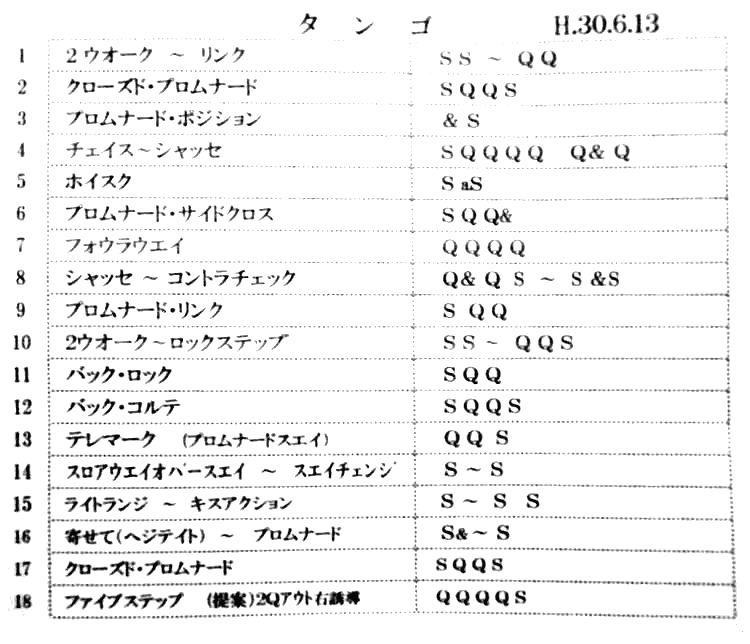 タンゴ H.30.6.13
1 2ウオーク ～ リンク S S ～ Q Q
2 クローズド・プロムナード S Q Q S
3 プロムナード・ポジション & S
4 チェイス～シャッセ S Q Q Q Q Q& Q
5 ホイスク S aS
6 プロムナード・サイドクロス S Q Q&
7 フォウラウエイ Q Q Q Q
8 シャッセ ～ コントラチェック Q& Q S ～ S &S
9 プロムナード・リンク S Q Q
10 2ウオーク～ロックステップ S S ～ Q Q S
11 バック・ロック S Q Q
12 バック・コルテ S Q Q S
13 テレマーク (プロムナードスエイ) Q Q S
14 スロアウエイオバースエイ ～ スエイチェンジ S ～ S
15 ライトランジ ～ キスアクション S ～ S S
16 寄せて(ヘジテイト) ～ プロムナード S& ～ S
17 クローズド・プロムナード S Q Q S
18 ファイブステップ (提案)2Qアウト右誘導 Q Q Q Q S